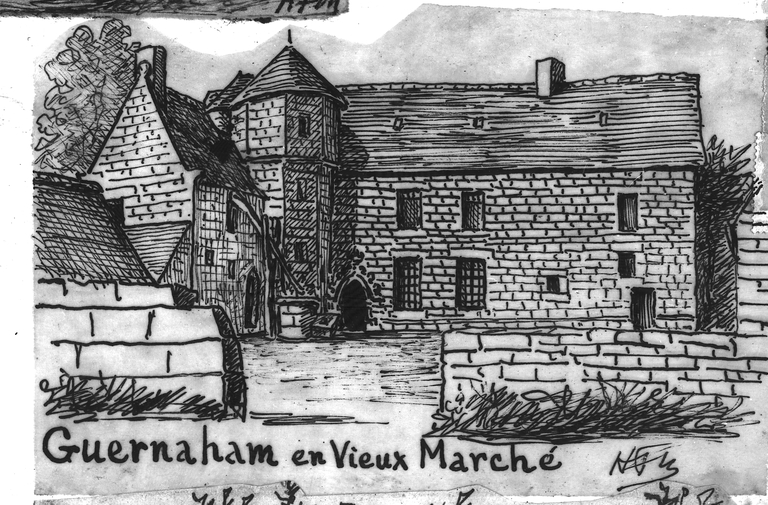 Guernaham en Vieux Marché